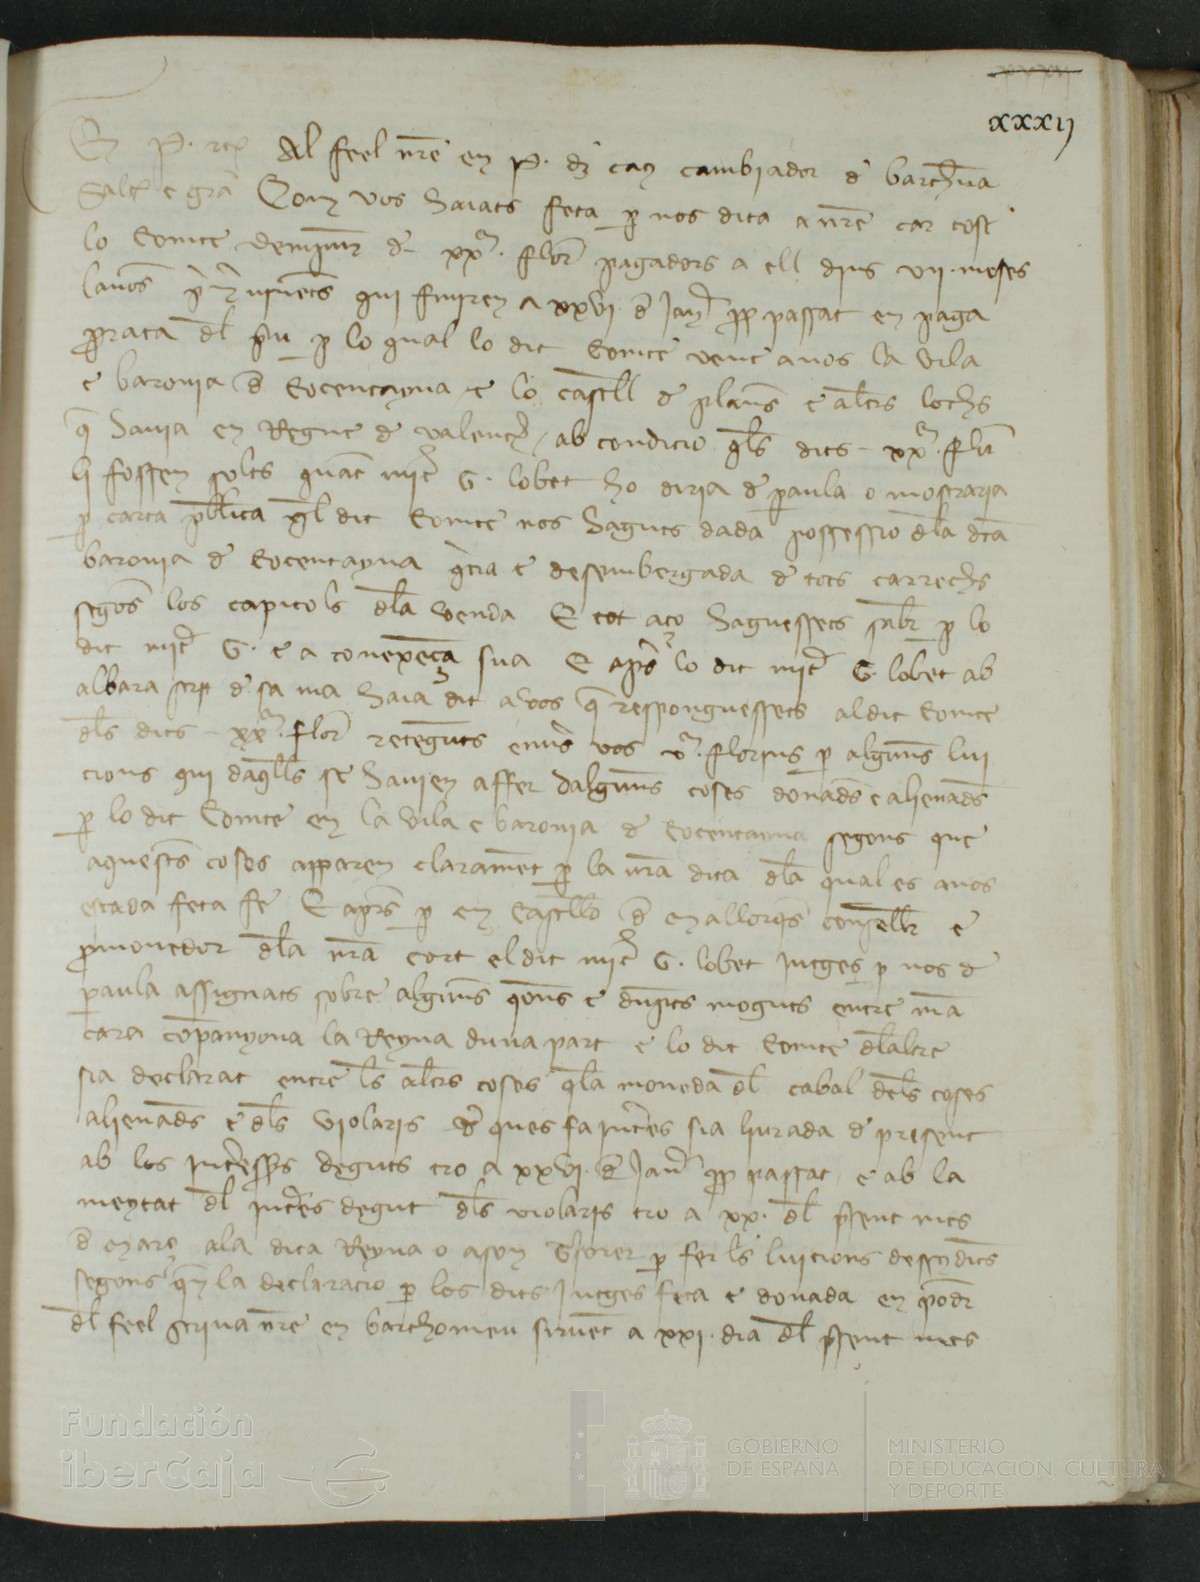 xxxij
En P. etc. Al feel nre en P. dez caus cambiador de barchna
Salut e gra Com vos haiats feta p nos dita a nre car cosi
lo Comte Dempur de xxm. flor pagadors a ell dins vii meses
lavos seguents qui finiren a xxvi de Jan pp passat en paga
prorata dl preu p lo qual lo dit Comte vene a nos la vila
e baronia de Cocentayna e lo castell de planes e altres lochs
q havia en Regne de valencia ab condicio qls dits xxm. flor
li fossen solts quant micer G. lobet ho diria de paula o mostraria
p carta publica ql dit Comte nos hagues dada possessio dla dta
baronia de Cocentayna quitia e desembergada de tots carrechs
segons los capitols dla venda E tot aço haguessets saber p lo
dit micer G. e a conexença sua E apres lo dit micer G. lobet ab
albara script de sa ma haia dit a vos q responguessets al dit Comte
dls dits xxm. flor retenguts envers vos vm. florins p algunes lui
cions qui daqlls se havien affer dalgunes coses donades e alienades
p lo dit Comte en la vila e baronia de Cocentayna segons que
aquestes coses apparen clarament p la nra dita dla qual es a nos
estada feta fe E apres p en Castello de mallorqs conseller e
promovedor dla nra cort el dit micer G. lobet jutges p nos de
paula assignats sobre algunes qons e duptes moguts entre nra
cara companyona la Reyna duna part e lo dit Comte dlaltre
sia declarat entre ls altres coses qla moneda dl cabal dels coses
alienades e dls violaris de ques fa interes sia liurada de present
ab los interesses deguts tro a xxvi de Jan pp passat e ab la
meytat dl interes degut dls violaris tro a xx. dl psent mes
de març ala dita Reyna o a son Tsorer p fer ls luicions dessusdites
segons qn la declaracio p los dits Jutges feta e donada en poder
dl feel scriva nre en barthomeu sirvent a xxi dia dl psent mes
Fundación
iberCaja
GOBIERNO
DE ESPAÑA
MINISTERIO
DE EDUCACIÓN, CULTURA
Y DEPORTE